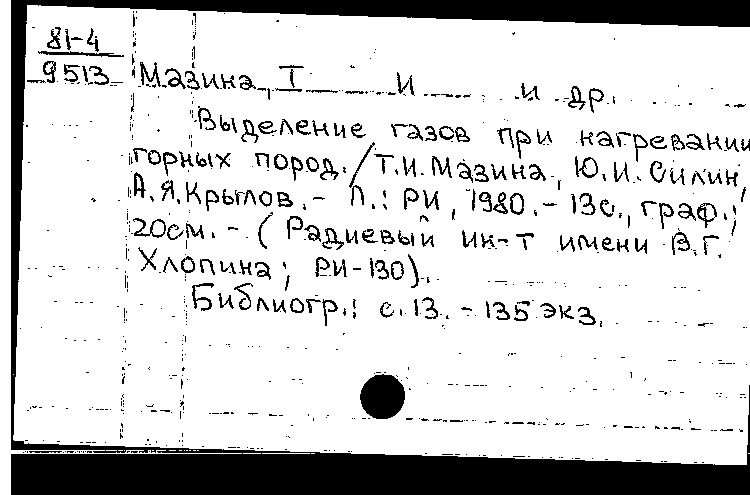 81-4
9513 Мазина, Т И и др.
Выделение газов при нагревании
горных пород. / Т.И. Мазина, Ю.И. Силин,
А.Я. Крылов. - Л.: РИ, 1980. - 13с., граф.;
20см. - (Радиевый ин-т имени В.Г.
Хлопина; РИ-130).
Библиогр.: с. 13. - 135 экз.